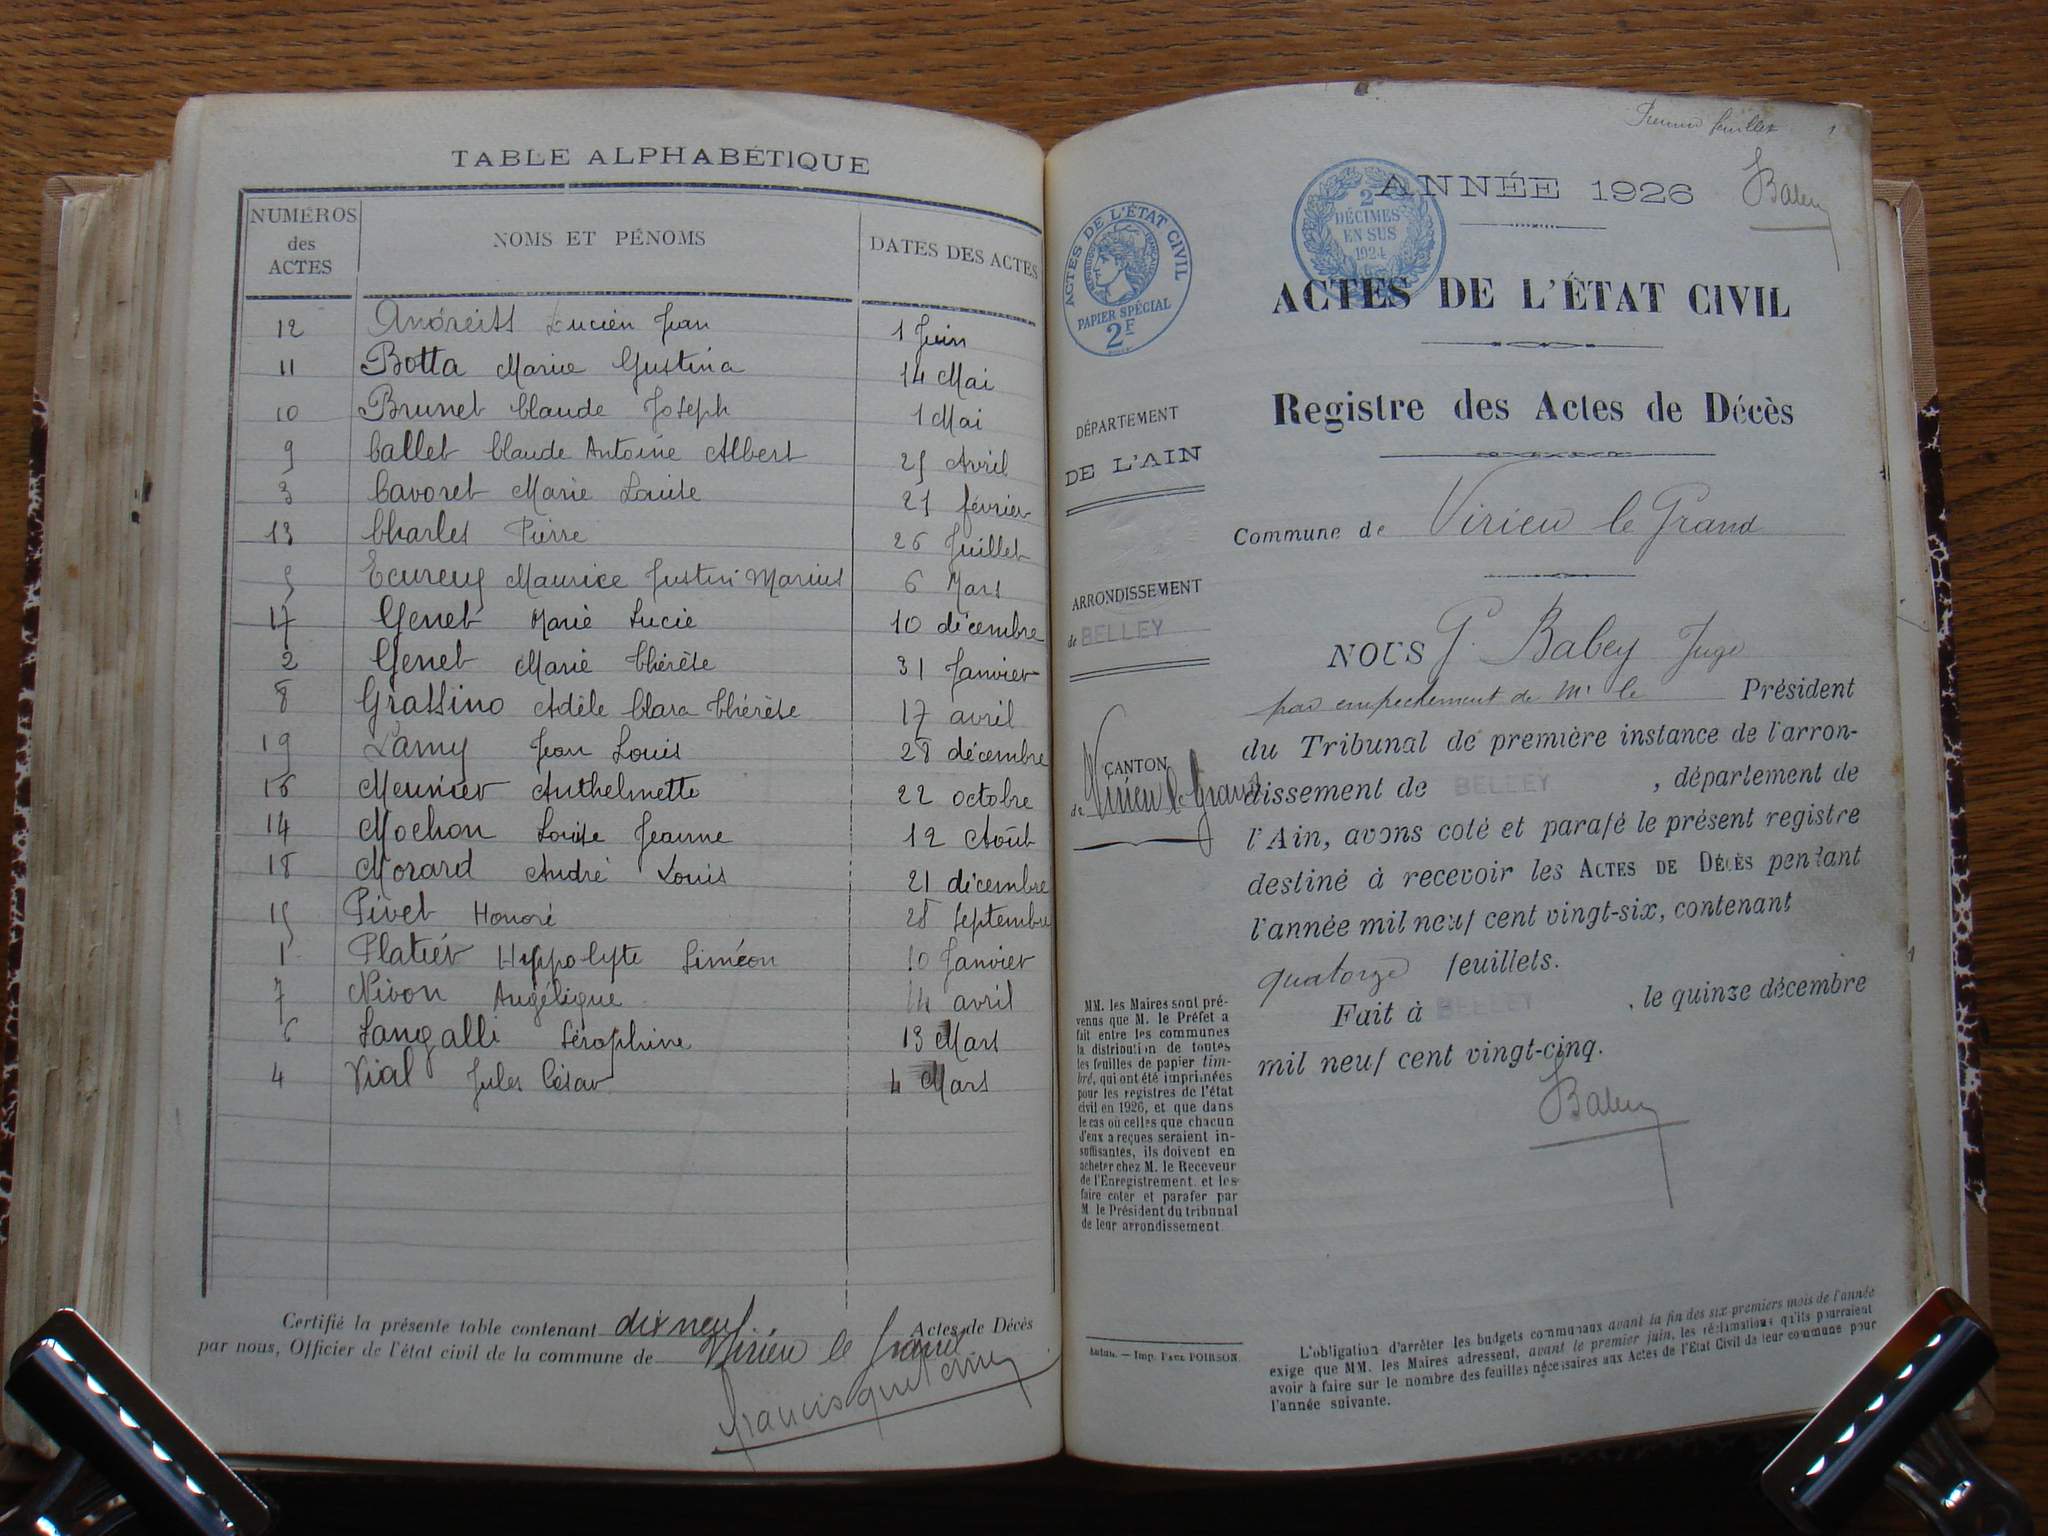 TABLE ALPHABÉTIQUE
NUMÉROS des ACTES NOMS ET PÉNOMS DATES DES ACTES
12 Lucien Jean 1 Juin
11 Botta Marie Gustina 14 Mai
10 Brunet Claude Joseph 1 Mai
9 Callet Claude Antoine Albert 25 Avril
3 Cavoret Marie Louise 21 février
13 Charles Pierre 26 Juillet
5 Maurice Justin Marius 6 Mars
17 Genet Marie Lucie 10 décembre
2 Genet Marie Thérèse 31 Janvier
8 Grassino Adèle Clara Thérèse 17 avril
19 Lamy Jean Louis 28 décembre
16 Meunier Anthelmette 22 octobre
14 Mochon Louise Jeanne 12 Août
18 Morard André Louis 21 décembre
15 Pivet Honoré 28 Septembre
1 Platier Hyppolyte Siméon 10 Janvier
7 Nivon Angélique 14 avril
6 Sangalli Séraphine 13 Mars
4 Vial Jules César 4 Mars
Certifié la présente table contenant dix neuf Actes de Décès
par nous, Officier de l'état civil de la commune de Virieu le Grand
Premier feuillet 1
Babey
ANNÉE 1926
2 DÉCIMES EN SUS 1924
ACTES DE L'ÉTAT CIVIL
RÉPUBLIQUE FRANÇAISE
PAPIER SPÉCIAL
2F
ACTES DE L'ÉTAT CIVIL
Registre des Actes de Décès
DÉPARTEMENT
DE L'AIN
Commune de Virieu le Grand
ARRONDISSEMENT
de BELLEY
CANTON
de Virieu le Grand
NOUS G. Babey Juge
par empechement de Mr le Président
du Tribunal de première instance de l'arron-
dissement de BELLEY, département de
l'Ain, avons coté et parafé le présent registre
destiné à recevoir les ACTES DE DÉCÈS pendant
l'année mil neuf cent vingt-six, contenant
quatorze feuillets.
Fait à BELLEY, le quinze décembre
mil neuf cent vingt-cinq.
Babey
MM. les Maires sont pré-
venus que M. le Préfet a
fait entre les communes
la distribution de toutes
les feuilles de papier tim-
bré, qui ont été imprimées
pour les registres de l'état
civil en 1926, et que dans
le cas où celles que chacun
d'eux a reçues seraient in-
suffisantes, ils doivent en
acheter chez M. le Receveur
de l'Enregistrement et les
faire coter et parafer par
M. le Président du tribunal
de leur arrondissement
Autun. — Imp. PAUL POIRSON.
L'obligation d'arrêter les budgets communaux avant la fin des six premiers mois de l'année
exige que MM. les Maires adressent, avant le premier juin, les réclamations qu'ils pourraient
avoir à faire sur le nombre des feuilles nécessaires aux Actes de l'État Civil de leur commune pour
l'année suivante.